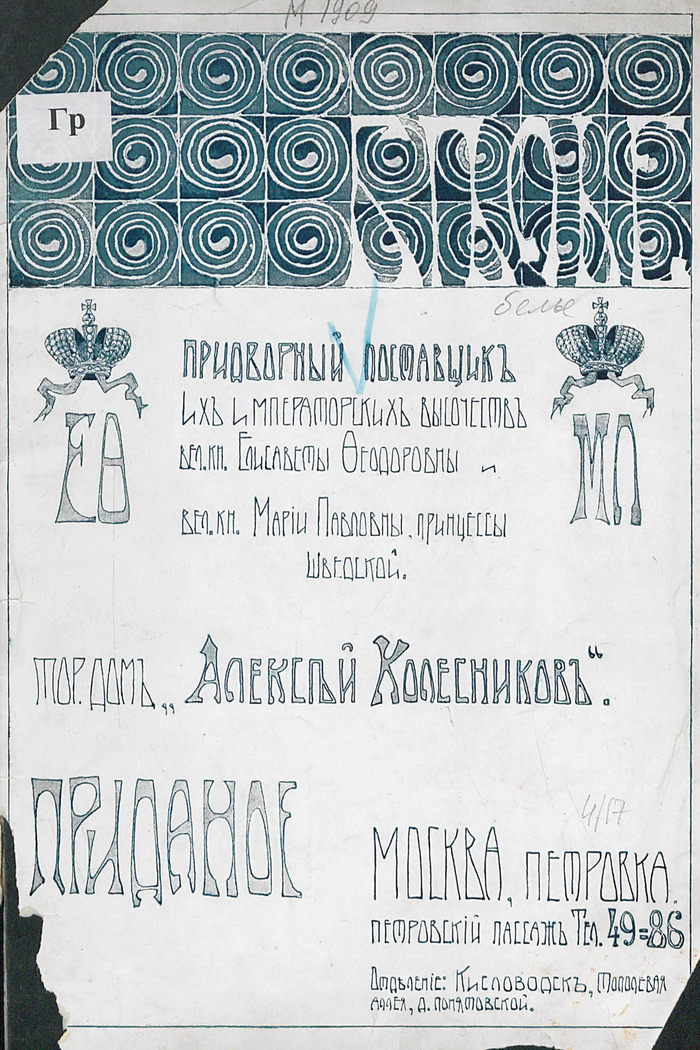 М 1909
Гр
БѢЛЬЕ
белье
ПРИДВОРНЫЙ ПОСТАВЩИКЪ
ИХЪ ИМПЕРАТОРСКИХЪ ВЫСОЧЕСТВЪ
ВЕЛ.КН. ЕЛИСАВЕТЫ ѲЕОДОРОВНЫ и
ЕѲ
МП
ВЕЛ.КН. МАРІИ ПАВЛОВНЫ, ПРИНЦЕССЫ
ШВЕДСКОЙ.
ТОР.ДОМЪ „АЛЕКСѢЙ КОЛЕСНИКОВЪ“.
ПРИДАНОЕ
4/17
МОСКВА, ПЕТРОВКА.
ПЕТРОВСКІЙ ПАССАЖЪ ТЕЛ. 49=86
ОТДѢЛЕНІЕ: КИСЛОВОДСКЪ, ТОПОЛЕВАЯ
АЛЛЕЯ, Д. ПОНЯТОВСКОЙ.